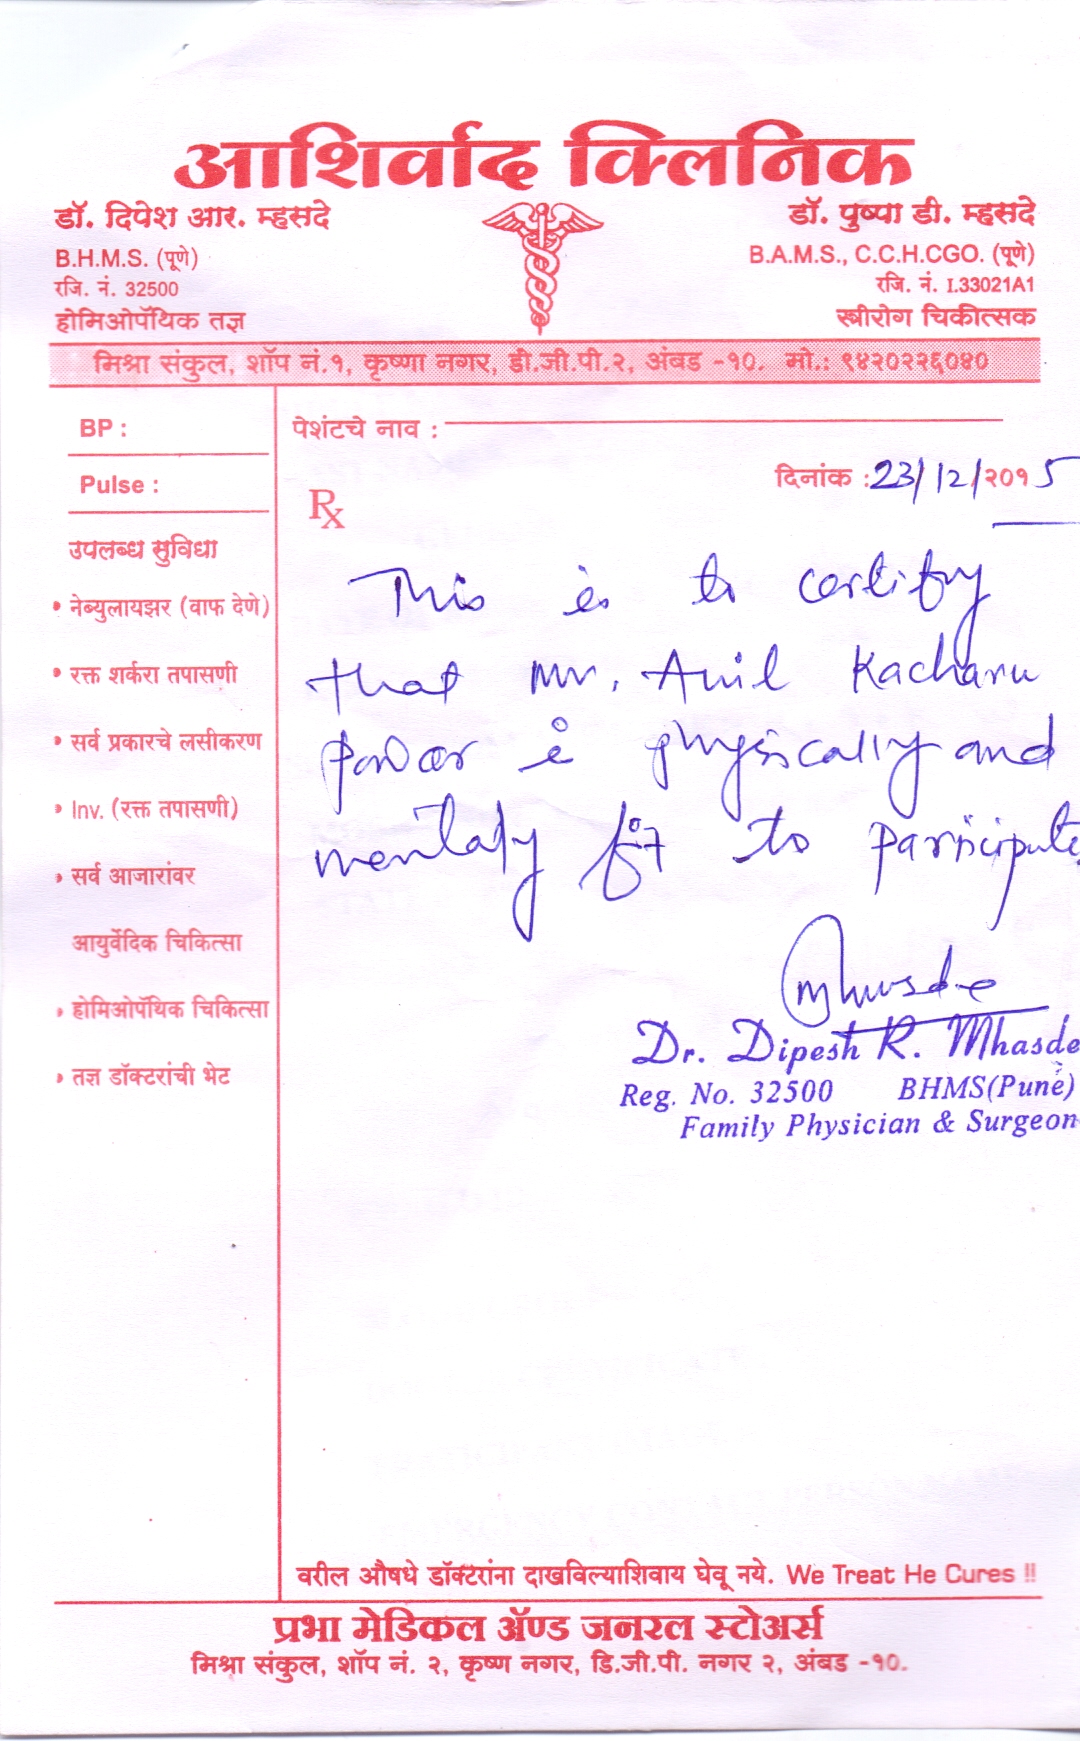 आशिर्वाद क्लिनिक
डॉ. दिपेश आर. म्हसदे
B.H.M.S. (पूणे)
रजि. नं. 32500
होमिओपॅथिक तज्ञ
डॉ. पुष्पा डी. म्हसदे
B.A.M.S., C.C.H.CGO. (पूणे)
रजि. नं. I.33021A1
स्त्रीरोग चिकीत्सक
मिश्रा संकुल, शॉप नं.१, कृष्णा नगर, डी.जी.पी.२, अंबड -१०. मो.: ९४२०२२६०४०
BP :
Pulse :
उपलब्ध सुविधा
• नेब्युलायझर (वाफ देणे)
• रक्त शर्करा तपासणी
• सर्व प्रकारचे लसीकरण
• Inv. (रक्त तपासणी)
• सर्व आजारांवर
आयुर्वेदिक चिकित्सा
• होमिओपॅथिक चिकित्सा
• तज्ञ डॉक्टरांची भेट
पेशंटचे नाव :
दिनांक :23/12/२०१5
Rx
This is to certify
that Mr. Anil Kacharu
pawar is physically and
mentally fit to participate
Mhasde
Dr. Dipesh R. Mhasde
Reg. No. 32500 BHMS(Pune)
Family Physician & Surgeon
वरील औषधे डॉक्टरांना दाखविल्याशिवाय घेवू नये. We Treat He Cures !!
प्रभा मेडिकल ॲण्ड जनरल स्टोअर्स
मिश्रा संकुल, शॉप नं. २, कृष्ण नगर, डि.जी.पी. नगर २, अंबड -१०.